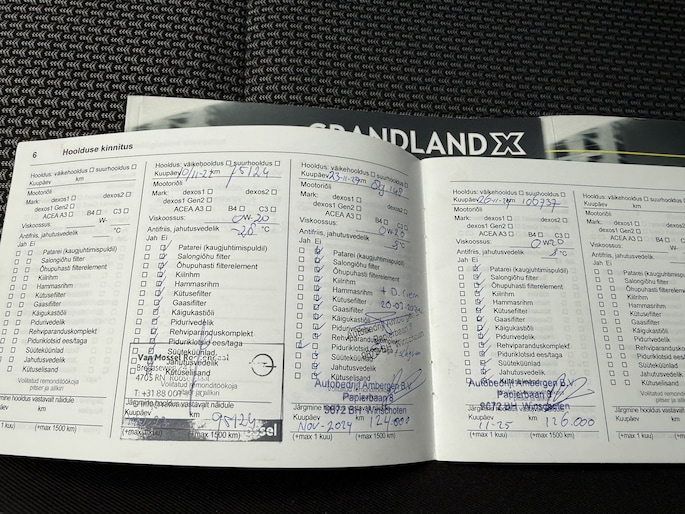 GRANDLAND X
6 Hoolduse kinnitus
Hooldus: väikehooldus suurhooldus
Kuupäev km
Mootoriõli
Mark: dexos1 dexos2
dexos1 Gen2
ACEA A3 B4 C3
Viskoossus: W-
Antifriis, jahutusvedelik °C
Jah Ei
Patarei (kaugjuhtimispuldil)
Salongiõhu filter
Õhupuhasti filterelement
Kiilrihm
Hammasrihm
Kütusefilter
Gaasifilter
Käigukastiõli
Pidurivedelik
Rehviparanduskomplekt
Piduriklotsid ees/taga
Süüteküünlad
Jahutusvedelik
Kütuselisand
Volitatud remonditöökoja
pitser ja allkiri
Järgmine hooldus vastavalt näidule
Kuupäev km
(+max 1 kuu) (+max 1500 km)
Hooldus: väikehooldus suurhooldus
Kuupäev km
Mootoriõli
Mark: dexos1 dexos2
dexos1 Gen2
ACEA A3 B4 C3
Viskoossus: 0W-20
Antifriis, jahutusvedelik °C
Jah Ei
Patarei (kaugjuhtimispuldil)
Salongiõhu filter
Õhupuhasti filterelement
Kiilrihm
Hammasrihm
Kütusefilter
Gaasifilter
Käigukastiõli
Pidurivedelik
Rehviparanduskomplekt
Piduriklotsid ees/taga
Süüteküünlad
Jahutusvedelik
Kütuselisand
Van Mossel
4705 RN
T: +31 88 00
Volitatud remonditöökoja
pitser ja allkiri
Järgmine hooldus vastavalt näidule
Kuupäev km
95124
(+max 1 kuu) (+max 1500 km)
Hooldus: väikehooldus suurhooldus
Kuupäev 23-11-23
Mootoriõli
Mark: dexos1 dexos2
dexos1 Gen2
ACEA A3 B4 C3
Viskoossus: 0W20
Antifriis, jahutusvedelik °C
Jah Ei
Patarei (kaugjuhtimispuldil)
Salongiõhu filter
Õhupuhasti filterelement
Kiilrihm
Hammasrihm
Kütusefilter
Gaasifilter
Käigukastiõli
Pidurivedelik
Piduriklotsid
Süüteküünlad
Jahutusvedelik
Kütuselisand
Autobedrijf Ambergen B.V.
Papierbaan 8
9672 BH Winschoten
Järgmine
Kuupäev km
NOV-2024 124.000
(+max 1 kuu) (+max 1500 km)
Hooldus: väikehooldus suurhooldus
Kuupäev km 106737
Mootoriõli
Mark: dexos1 dexos2
dexos1 Gen2
ACEA A3 B4 C3
Viskoossus: 0W20
Antifriis, jahutusvedelik °C
Jah Ei
Patarei (kaugjuhtimispuldil)
Salongiõhu filter
Õhupuhasti filterelement
Kiilrihm
Hammasrihm
Kütusefilter
Gaasifilter
Käigukastiõli
Pidurivedelik
Rehviparanduskomplekt
Piduriklotsid ees/taga
Süüteküünlad
Jahutusvedelik
Kütuselisand
Autobedrijf Ambergen B.V.
Papierbaan 8
9672 BH Winschoten
Järgmine hooldus vastavalt näidule
Kuupäev km
11-25 126.000
(+max 1 kuu) (+max 1500 km)
Hooldus: väikehooldus
Kuupäev km
Mootoriõli
Mark: dexos1
dexos1 Gen2
ACEA A3 B4
Viskoossus: W-
Antifriis, jahutusvedelik
Jah Ei
Patarei (kaugjuhtimis
Salongiõhu filter
Õhupuhasti filterelement
Kiilrihm
Hammasrihm
Kütusefilter
Gaasifilter
Käigukastiõli
Pidurivedelik
Rehviparandus
Piduriklotsid
Süüteküünlad
Jahutusvedelik
Kütuselisand
Volitatud remond
pitser ja
Järgmine hooldus vast
Kuupäev
(+max 1 kuu)